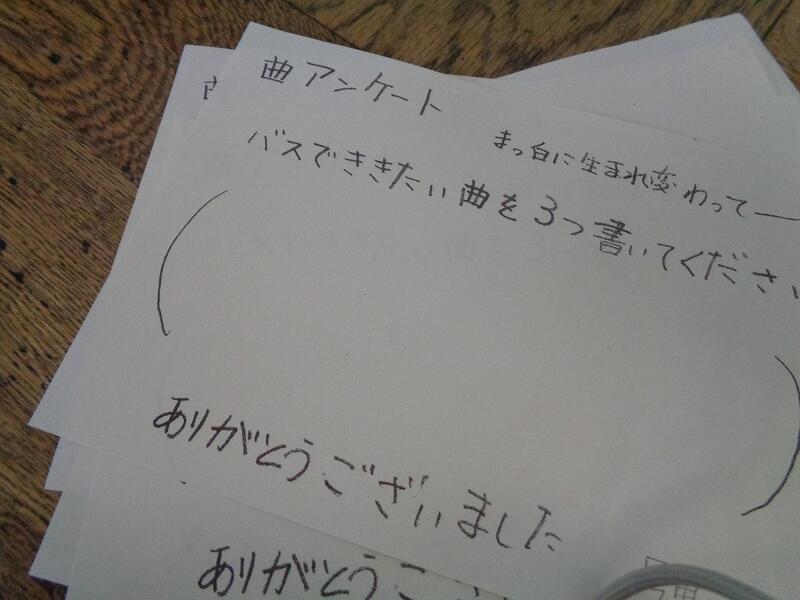 曲アンケート
まっ白に生まれ変わってー
バスでききたい曲を3つ書いてくださ
ありがとうございました
ありがとうご